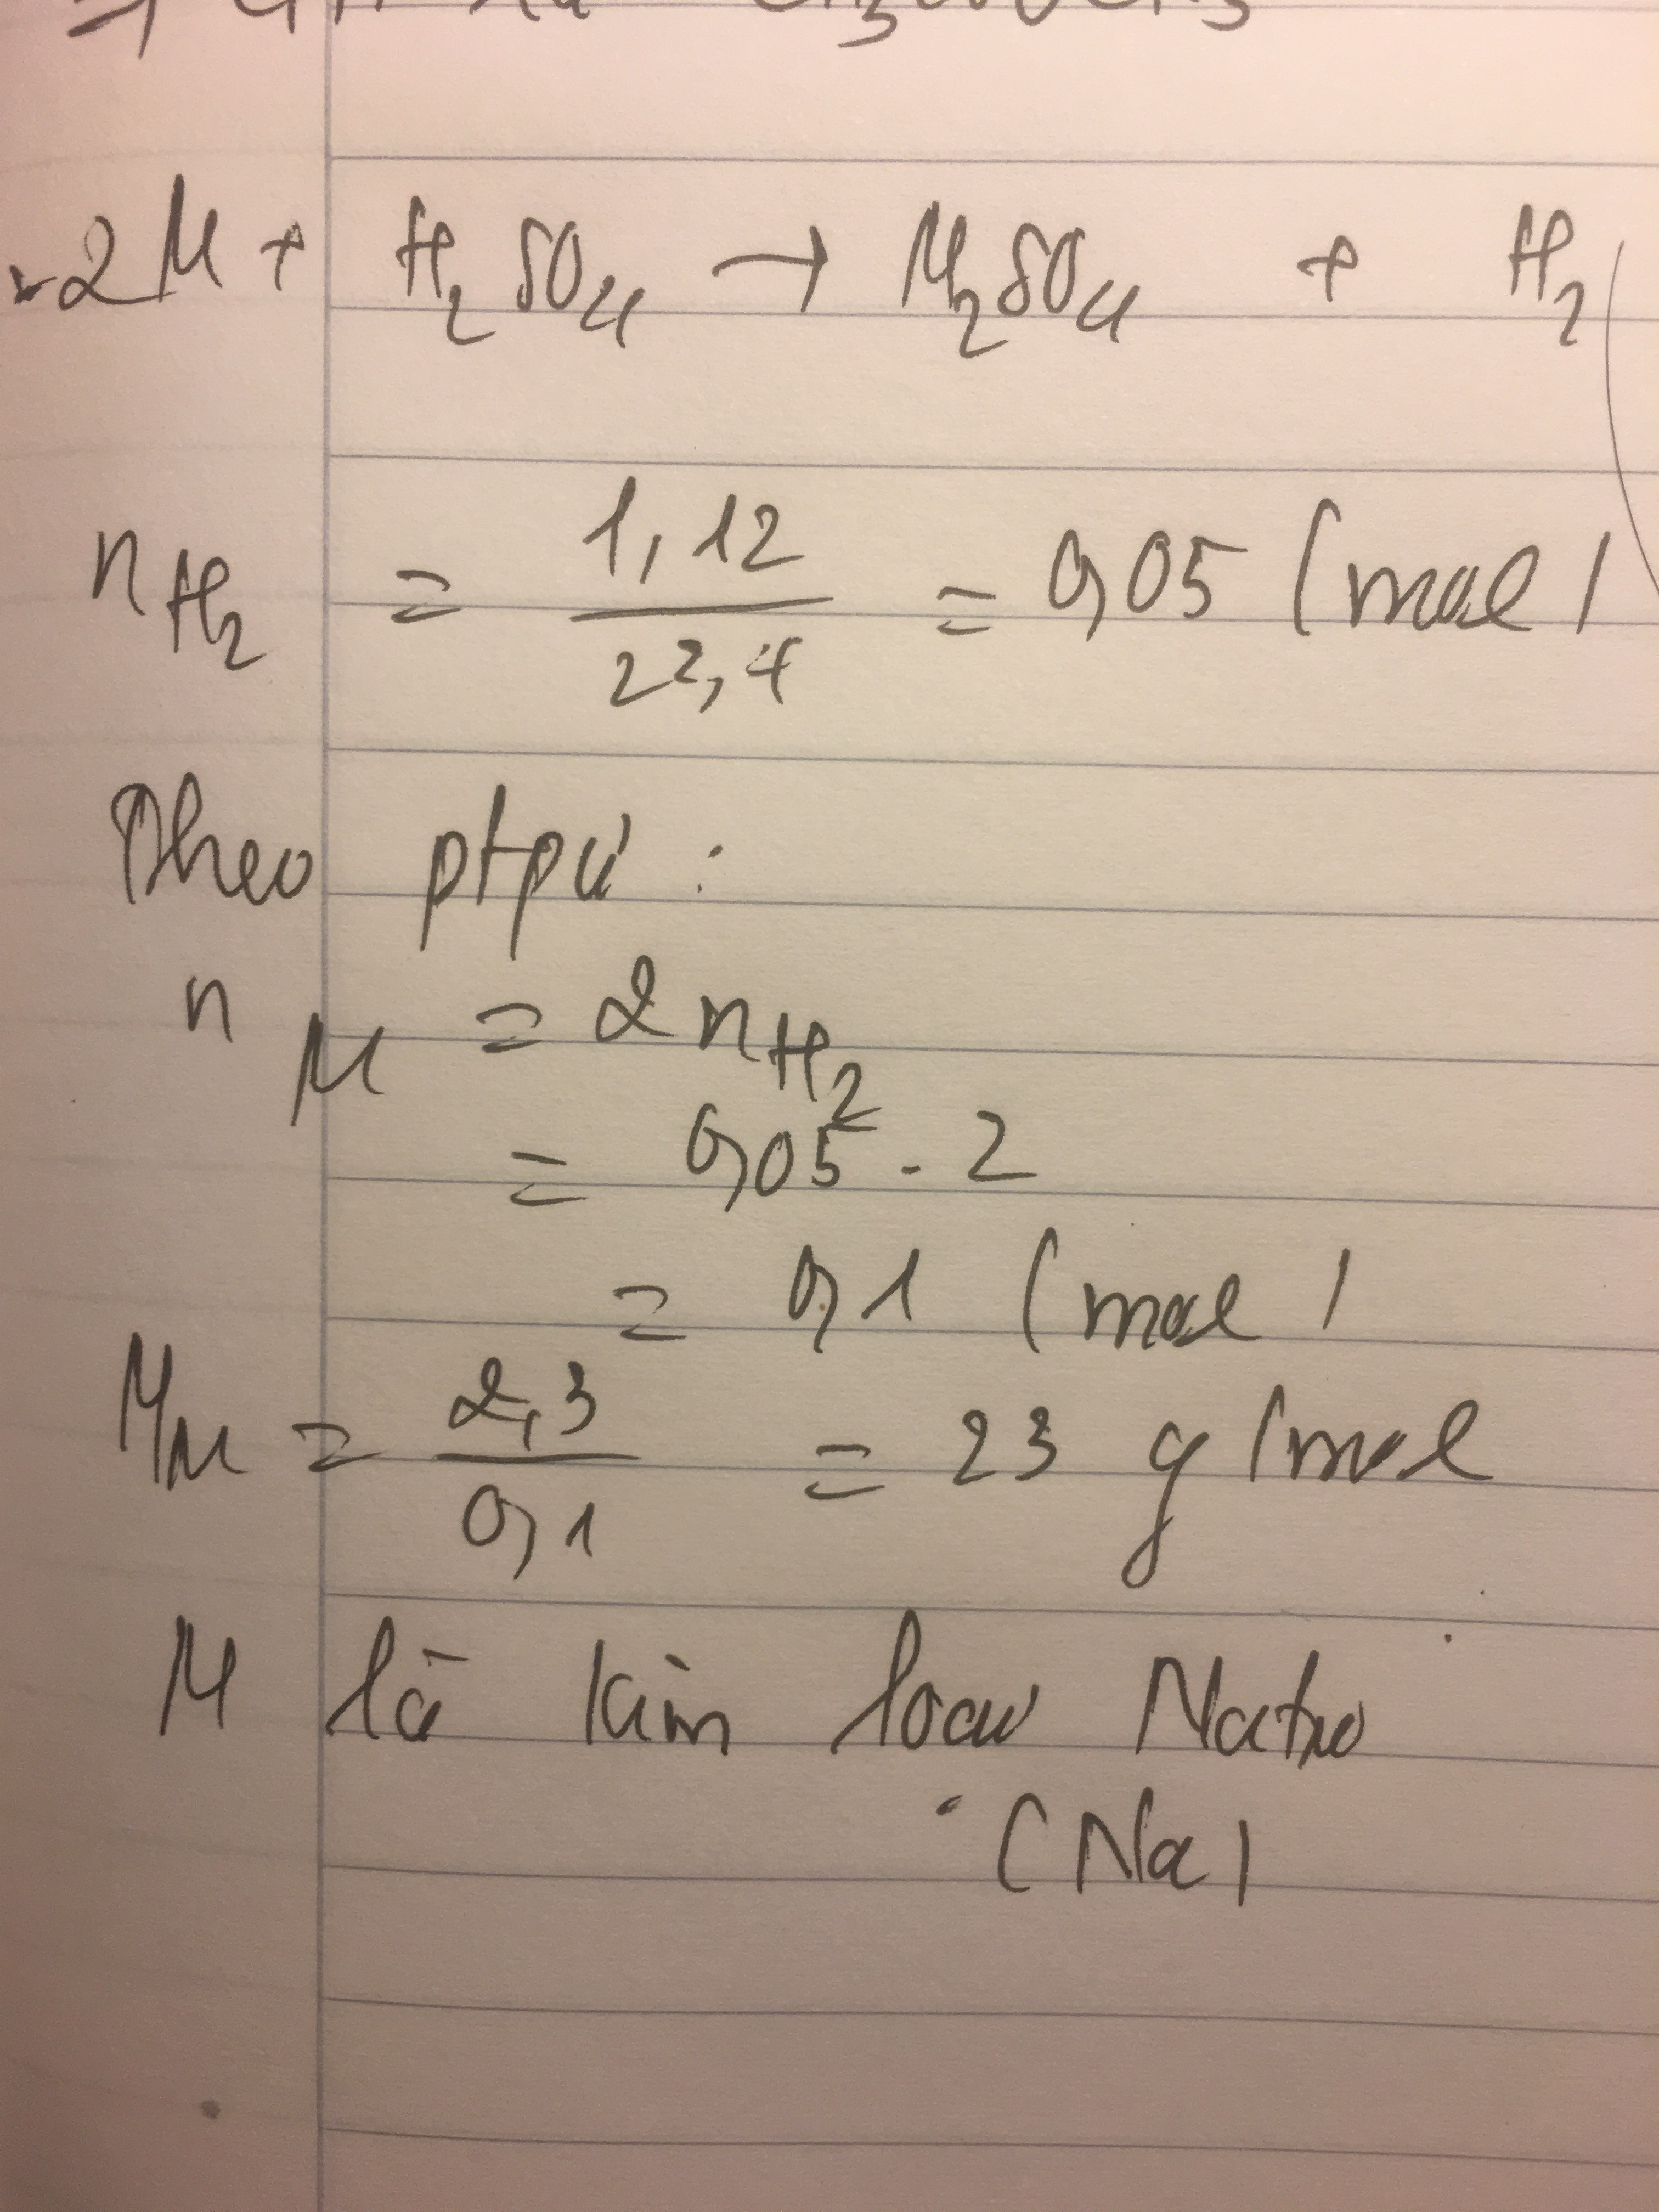 CH3COOCH3
2M + H2SO4 → M2SO4 + H2
nH2 = 1,12 / 22,4 = 0,05 (mol)
Theo ptpứ :
nM = 2nH2
= 0,05 . 2
= 0,1 (mol)
MM = 2,3 / 0,1 = 23 g/mol
M là kim loại Natri
(Na)